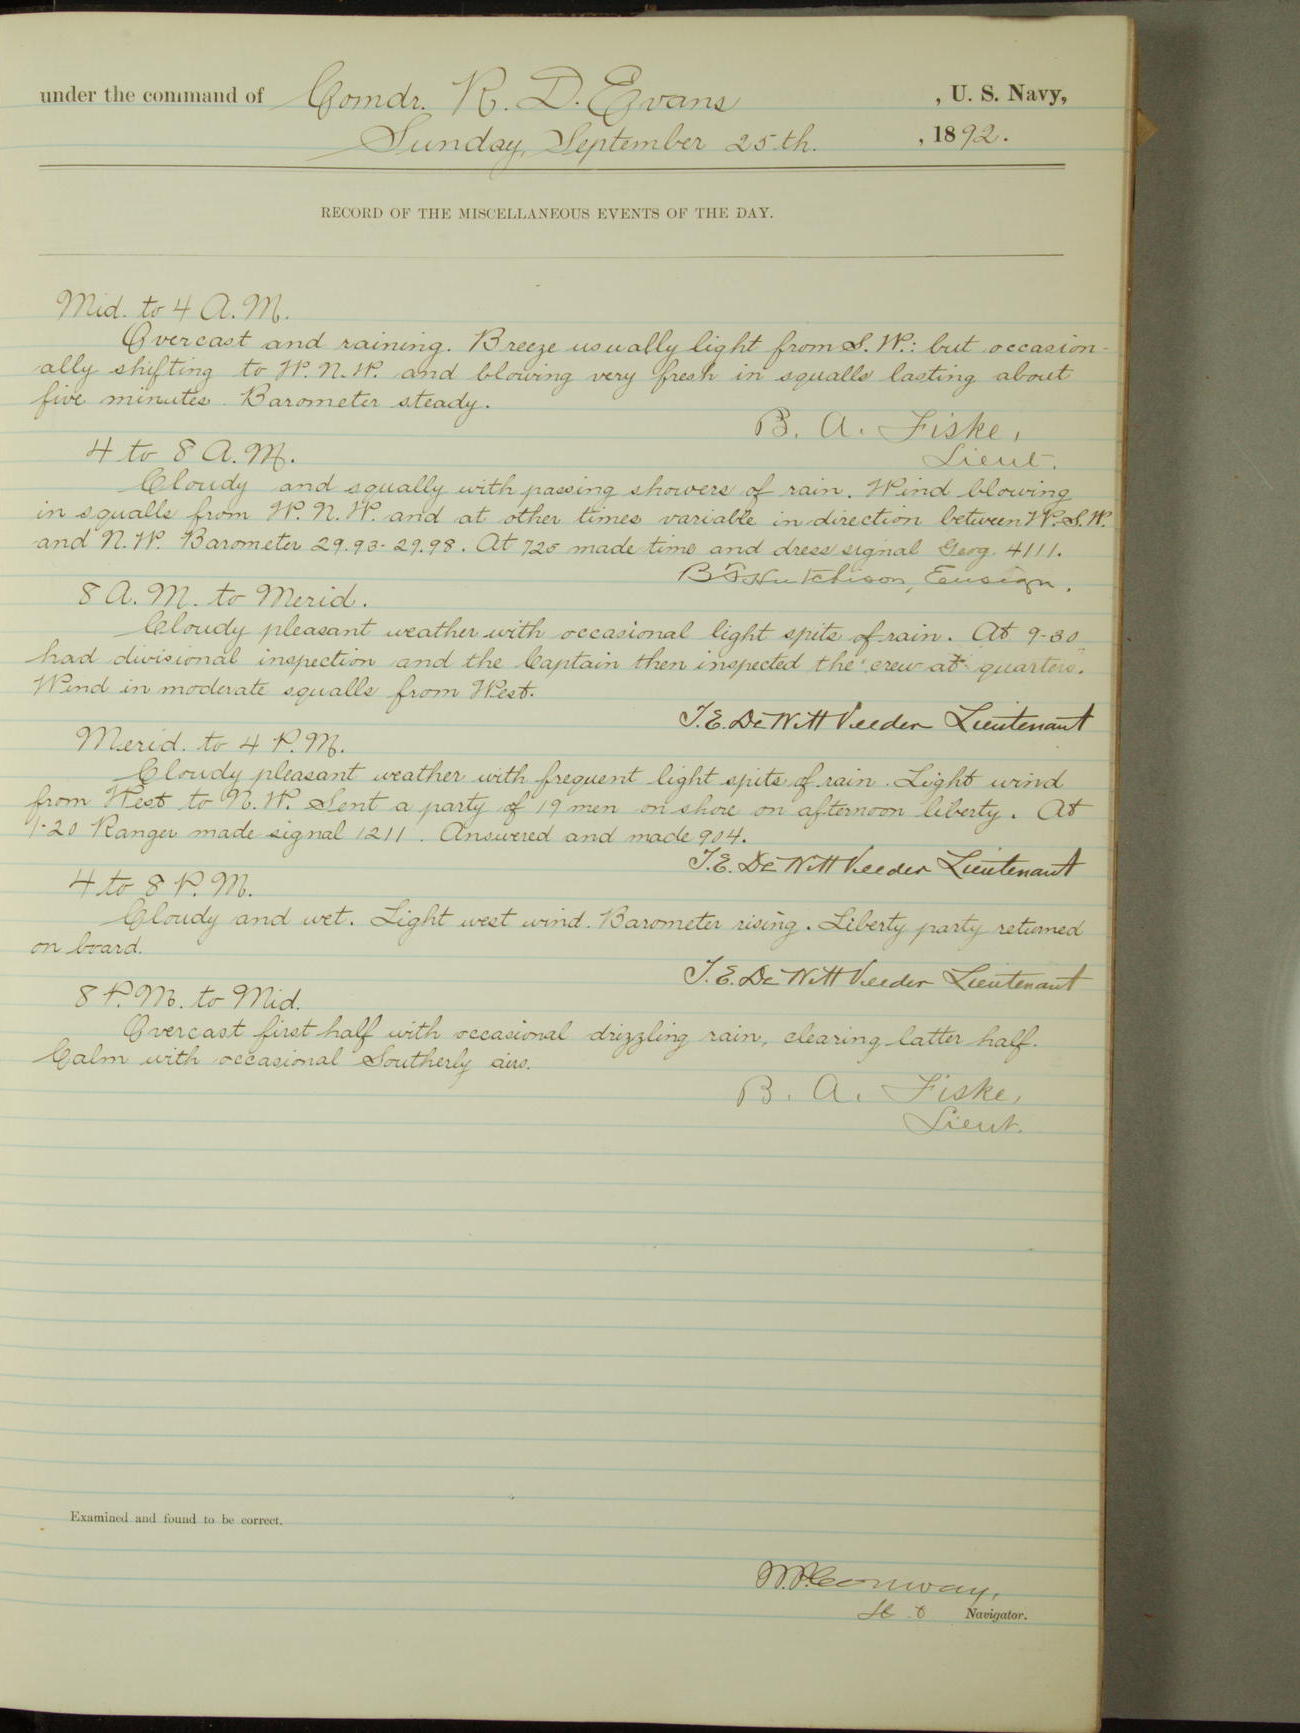 under the command of Comdr. R. D. Evans, U. S. Navy,
Sunday, September 25th., 1892.
RECORD OF THE MISCELLANEOUS EVENTS OF THE DAY.
Mid. to 4 A.M.
Overcast and raining. Breeze usually light from S.W.: but occasion-
ally shifting to W.N.W. and blowing very fresh in squalls lasting about
five minutes. Barometer steady.
B. A. Fiske,
Lieut.
4 to 8 A.M.
Cloudy and squally with passing showers of rain. Wind blowing
in squalls from W.N.W. and at other times variable in direction between W.S.W.
and N.W. Barometer 29.93-29.98. At 725 made time and dress signal Geog. 4111.
B F Hutchison, Ensign.
8 A.M. to Merid.
Cloudy pleasant weather with occasional light spits of rain. At 9-30
had divisional inspection and the Captain then inspected the crew at quarters.
Wind in moderate squalls from West.
T.E. DeWitt Veeder Lieutenant
Merid. to 4 P.M.
Cloudy pleasant weather with frequent light spits of rain. Light wind
from West to N.W. Sent a party of 19 men on shore on afternoon liberty. At
1-20 Ranger made signal 1211. Answered and made 904.
T.E. DeWitt Veeder Lieutenant
4 to 8 P.M.
Cloudy and wet. Light west wind. Barometer rising. Liberty party returned
on board.
T.E. DeWitt Veeder Lieutenant
8 P.M. to Mid.
Overcast first half with occasional drizzling rain, clearing latter half.
Calm with occasional Southerly airs.
B. A. Fiske,
Lieut.
Examined and found to be correct.
W.P. Conway,
Navigator.